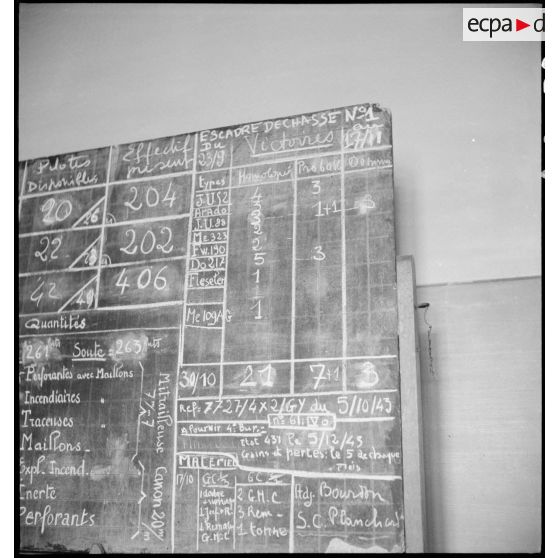 ecpa▶d
ESCADRE DE CHASSE N°1
Du 23/9 Victoires au 17/11
Pilotes Disponibles
Effectif présent
types Homologués Probable
20 204
22 202
42 406
J.U 52 4 3
Arado 2 1+1 3
J.U.88 3
Me 323 2
Fw.190 2
Do 217 5 3
Fieseler 1
Me 109 G 1
30/10 21 7+1 3
Quantités
261 Soute = 263
Perforantes avec Maillons
Incendiaires
Traceuses
Maillons
Expl. Incend.
Inerte
Perforants
Mitrailleuse 7.7
Canon 20 m/m
Ref= 77-27/4 x 2/GY du 5/10/43
a Pournir 4e Bur.
Etat 431 le 5/12/43
Gains et pertes: le 5 de chaque mois
MATERIEL
17/10
GC
2 G.H.C
3 Rem
1 tonne
Adj. Bourdon
S.C. Planchar